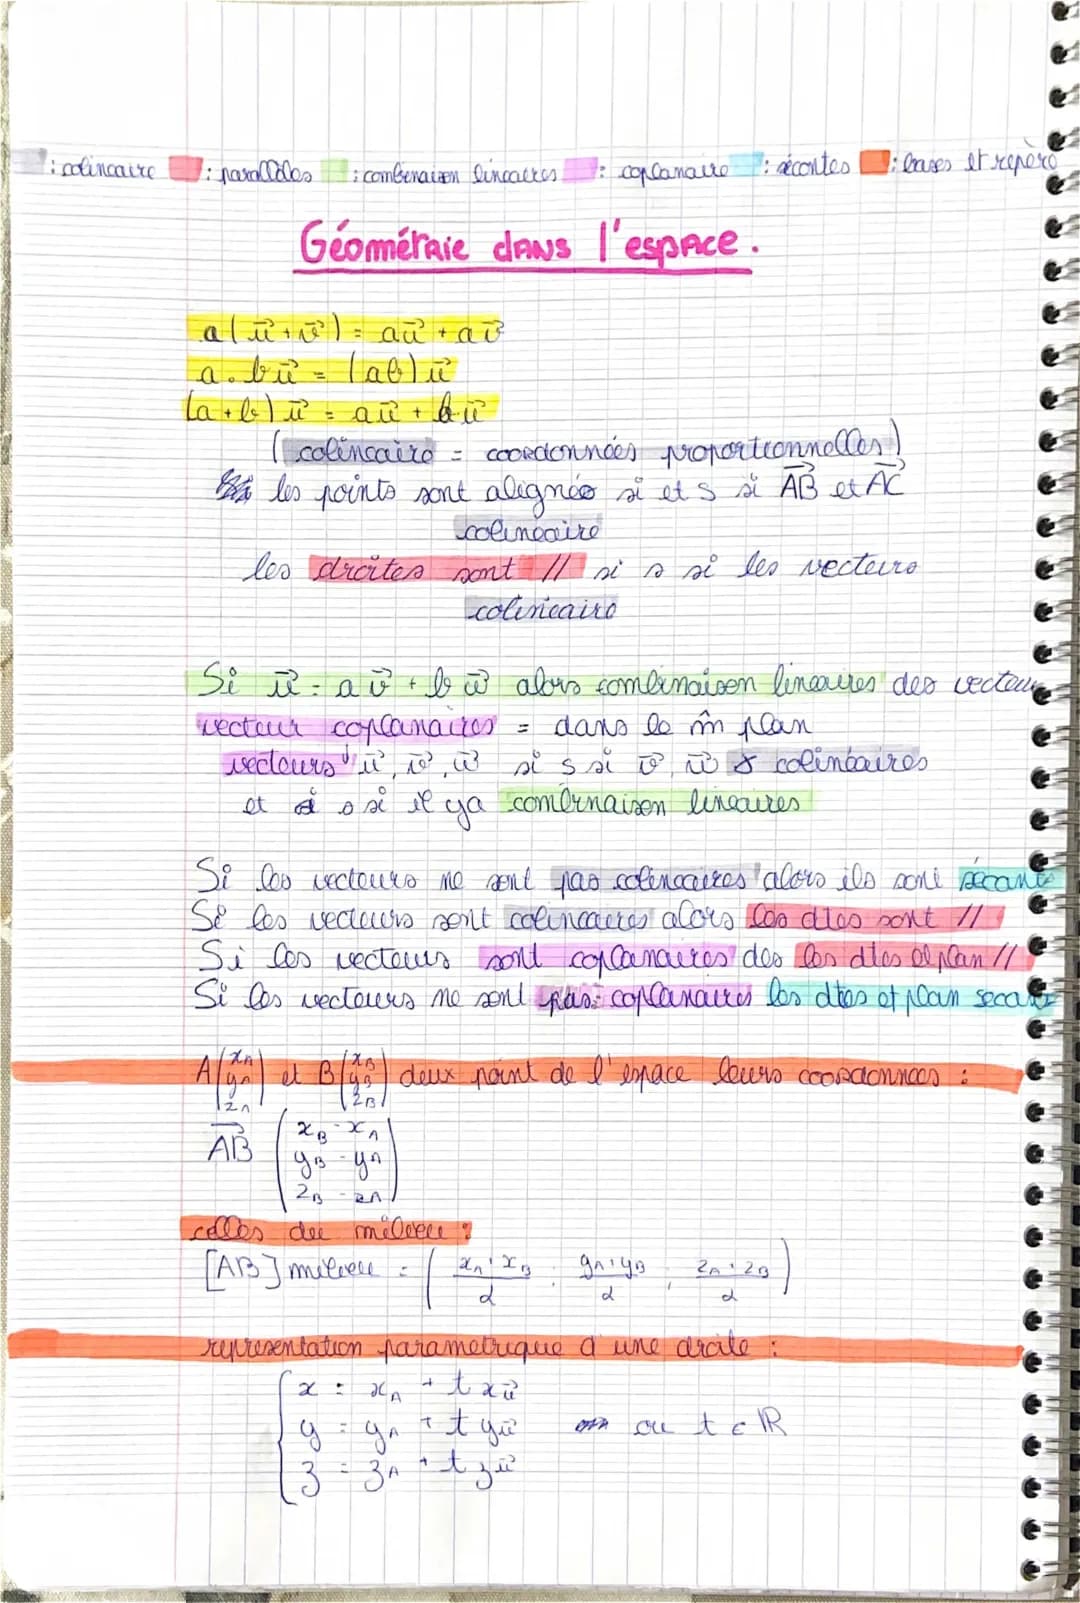 : colineaire : parallèles : combinaison lineaires : coplanaire : sécantes : bases et repère
Géométrie dans l'espace.
a(u⃗+v⃗) = au⃗ + av⃗
a.bu⃗ = (ab)u⃗
(a+b)u⃗ = au⃗ + bu⃗
(colineaire = coordonnées proportionnelles)
les points sont alignés si et s si AB⃗ et AC⃗
colineaire
les droites sont // si s si les vecteurs
colineaire
Si u⃗ = av⃗ + bw⃗ alors combinaison lineaires des vecteurs
vecteur coplanaires = dans le m̂ plan
vecteurs u⃗, v⃗, w⃗ si s si v⃗, w⃗ colinéaires
et s si il ya combinaison lineaires
Si les vecteurs ne sont pas colineaires alors ils sont sécants
Si les vecteurs sont colineaires alors les dtes sont //
Si les vecteurs sont coplanaires des les dtes et plan //
Si les vecteurs ne sont pas coplanaires les dtes et plan secants
A(xA yA zA) et B(xB yB zB) deux point de l'espace leurs coordonnees :
AB⃗ (xB - xA
yB - yA
zB - zA)
celles du milieu :
[AB] milieu = (xA + xB / 2 ; yA + yB / 2 ; zA + zB / 2)
representation parametrique d'une droite :
{ x = xA + t xu⃗
y = yA + t yu⃗ ou t ∈ ℝ
z = zA + t zu⃗